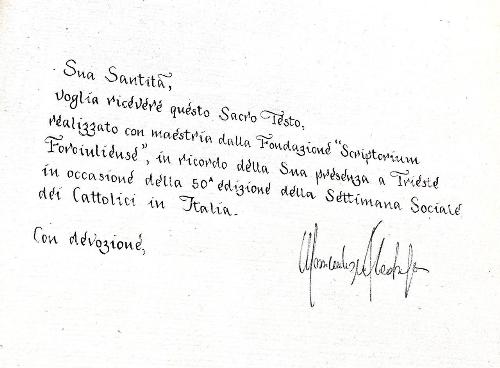 Sua Santità,
voglia ricevere questo Sacro Testo,
realizzato con maestria dalla Fondazione "Scriptorium
Foroiuliense", in ricordo della Sua presenza a Trieste
in occasione della 50ª edizione della Settimana Sociale
dei Cattolici in Italia.
Con devozione,